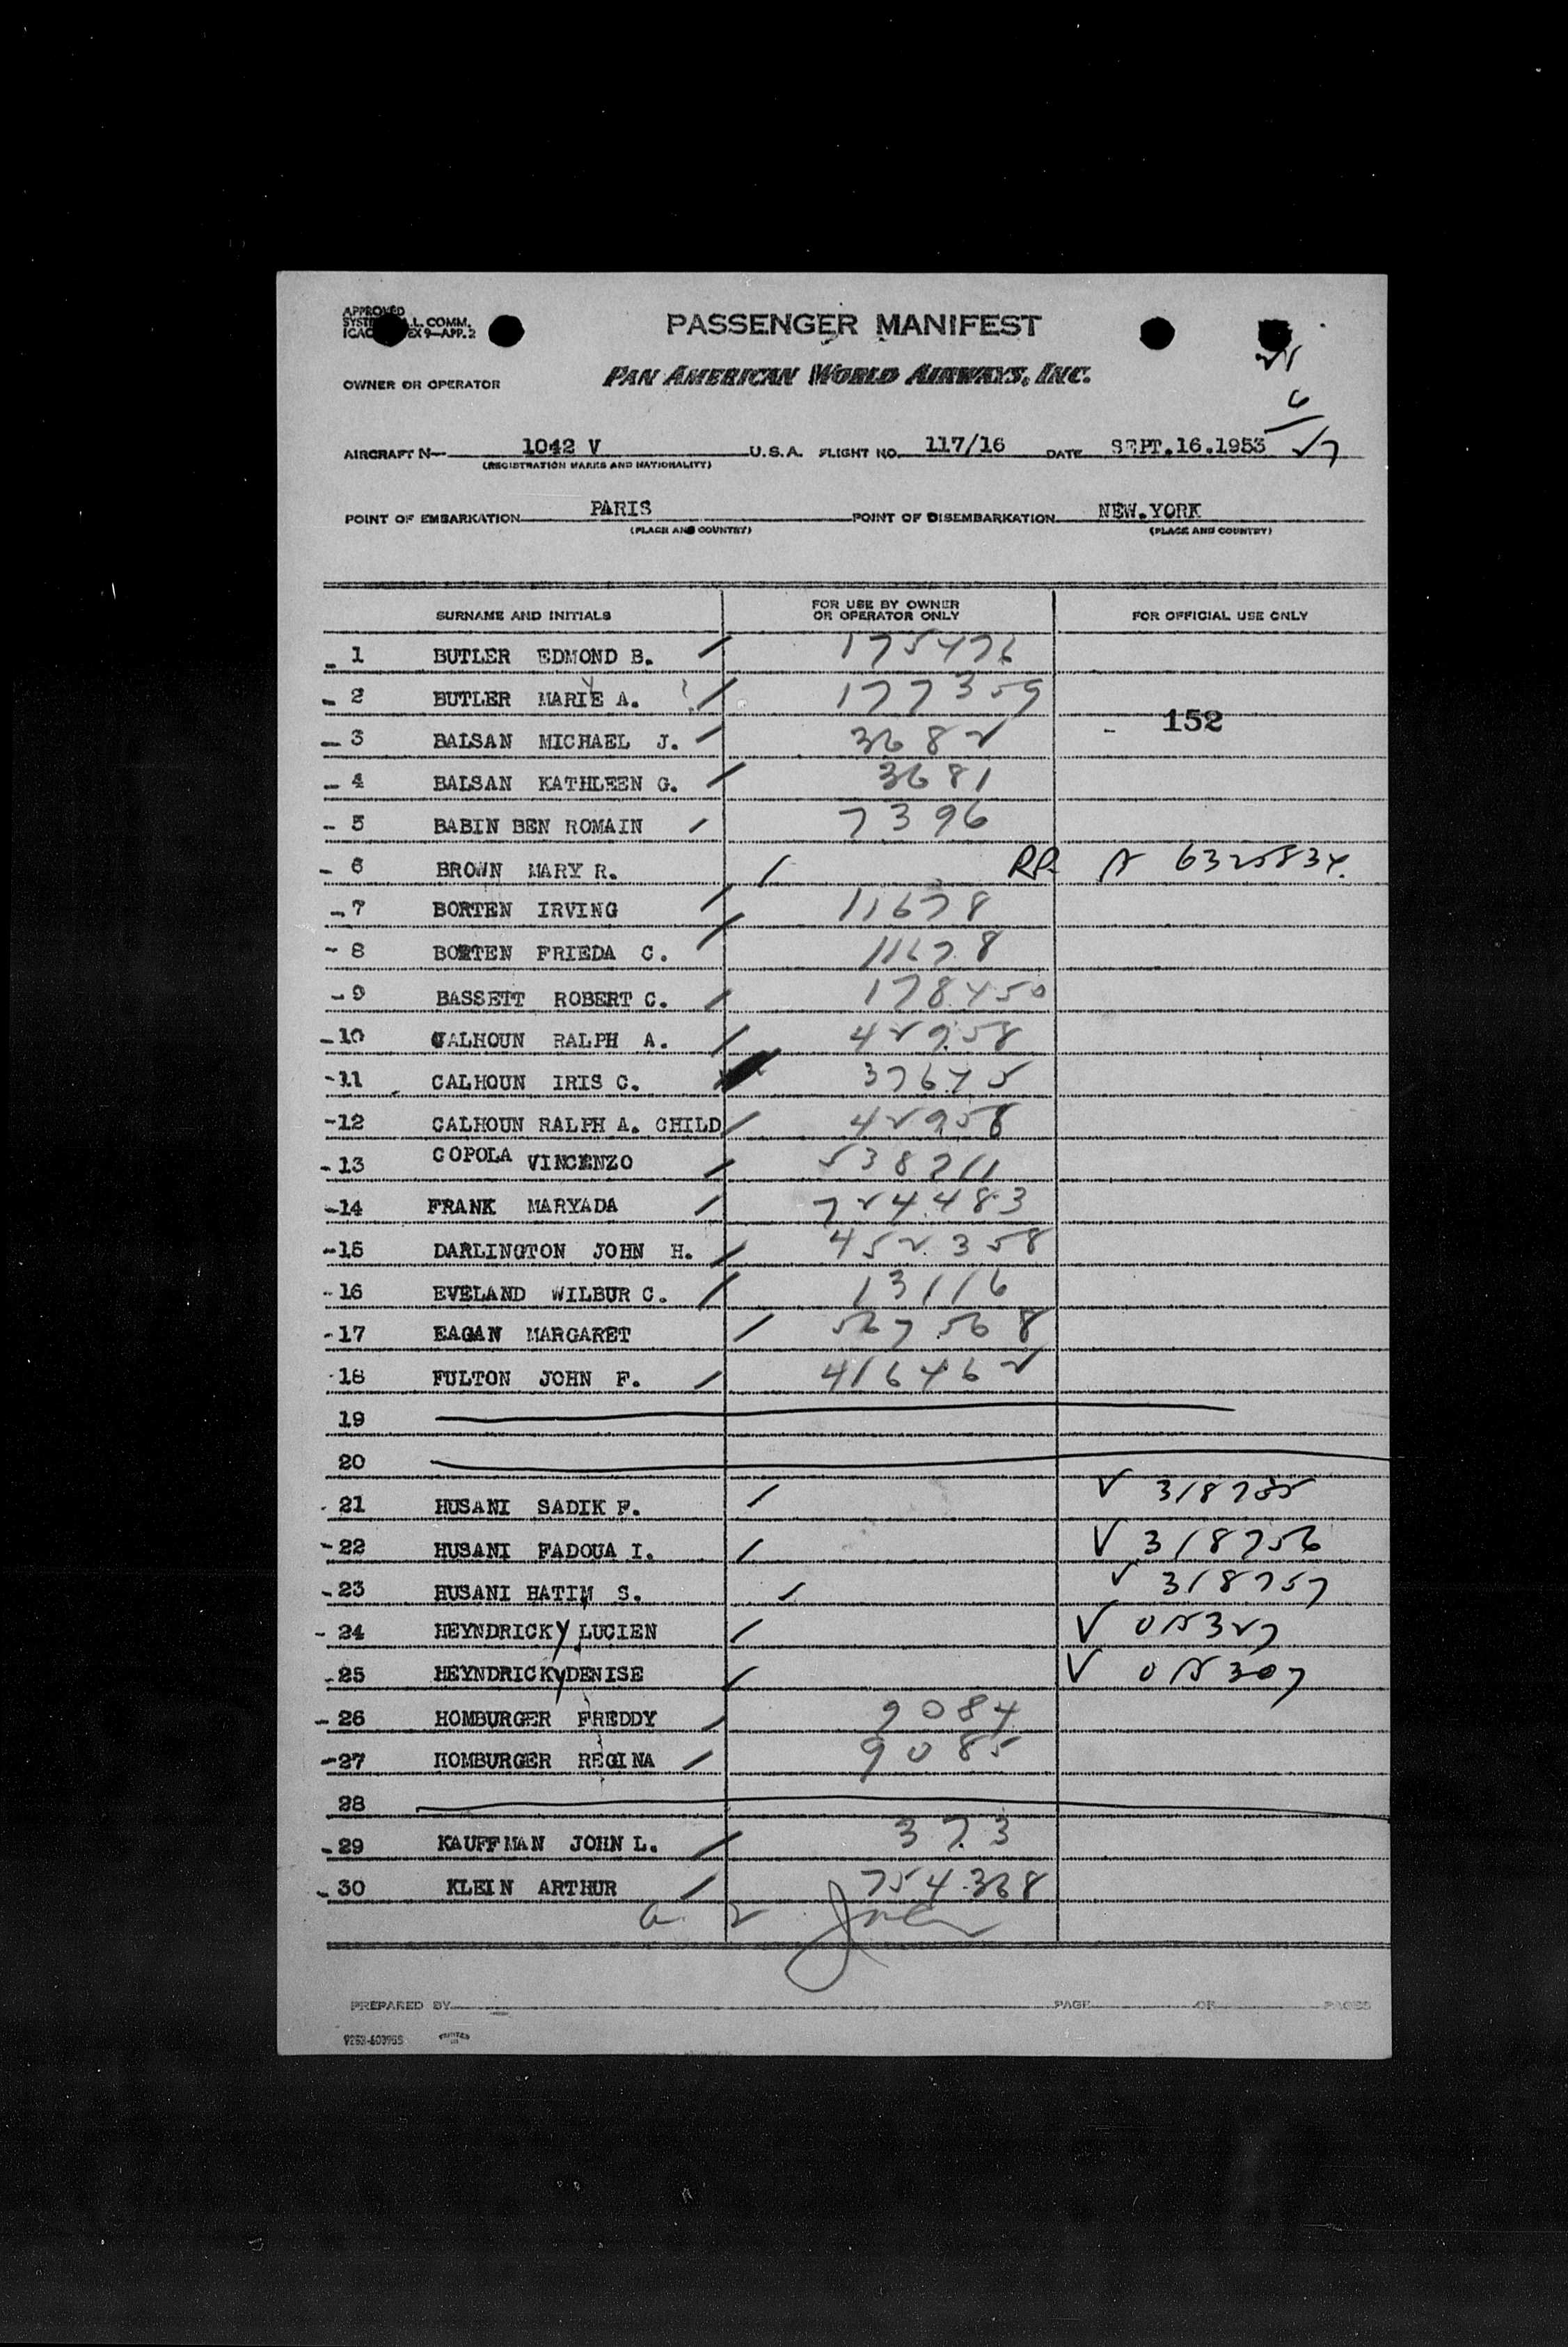 APPROVED
SYSTEM A.L. COMM.
ICAO EX 9—APP. 2
PASSENGER MANIFEST
OWNER OR OPERATOR PAN AMERICAN WORLD AIRWAYS, INC.
21
6
27
AIRCRAFT N— 1042 V U.S.A. FLIGHT NO. 117/16 DATE SEPT.16.1953
(REGISTRATION MARKS AND NATIONALITY)
POINT OF EMBARKATION PARIS POINT OF DISEMBARKATION NEW.YORK
(PLACE AND COUNTRY) (PLACE AND COUNTRY)
SURNAME AND INITIALS FOR USE BY OWNER OR OPERATOR ONLY FOR OFFICIAL USE ONLY
1 BUTLER EDMOND B. 175476
2 BUTLER MARIE A. 177359
152
3 BALSAN MICHAEL J. 3682
4 BALSAN KATHLEEN G. 3681
5 BABIN BEN ROMAIN 7396
6 BROWN MARY R. RP 6325834
7 BORTEN IRVING 11678
8 BORTEN FRIEDA C. 11678
9 BASSETT ROBERT C. 178450
10 CALHOUN RALPH A. 42958
11 CALHOUN IRIS C. 37645
12 CALHOUN RALPH A. CHILD 42958
13 COPOLA VINCENZO 538711
14 FRANK MARYADA 724483
15 DARLINGTON JOHN H. 452358
16 EVELAND WILBUR C. 13116
17 EAGAN MARGARET 567568
18 FULTON JOHN F. 416462
19
20
21 HUSANI SADIK F. V 318755
22 HUSANI FADOUA I. V 318756
23 HUSANI HATIM S. V 318757
24 HEYNDRICKY LUCIEN V
25 HEYNDRICKY DENISE V
26 HOMBURGER FREDDY 9084
27 HOMBURGER REGINA 9085
28
29 KAUFFMAN JOHN L. 373
30 KLEIN ARTHUR 754368
PREPARED BY PAGE OF PAGES
PRINTED